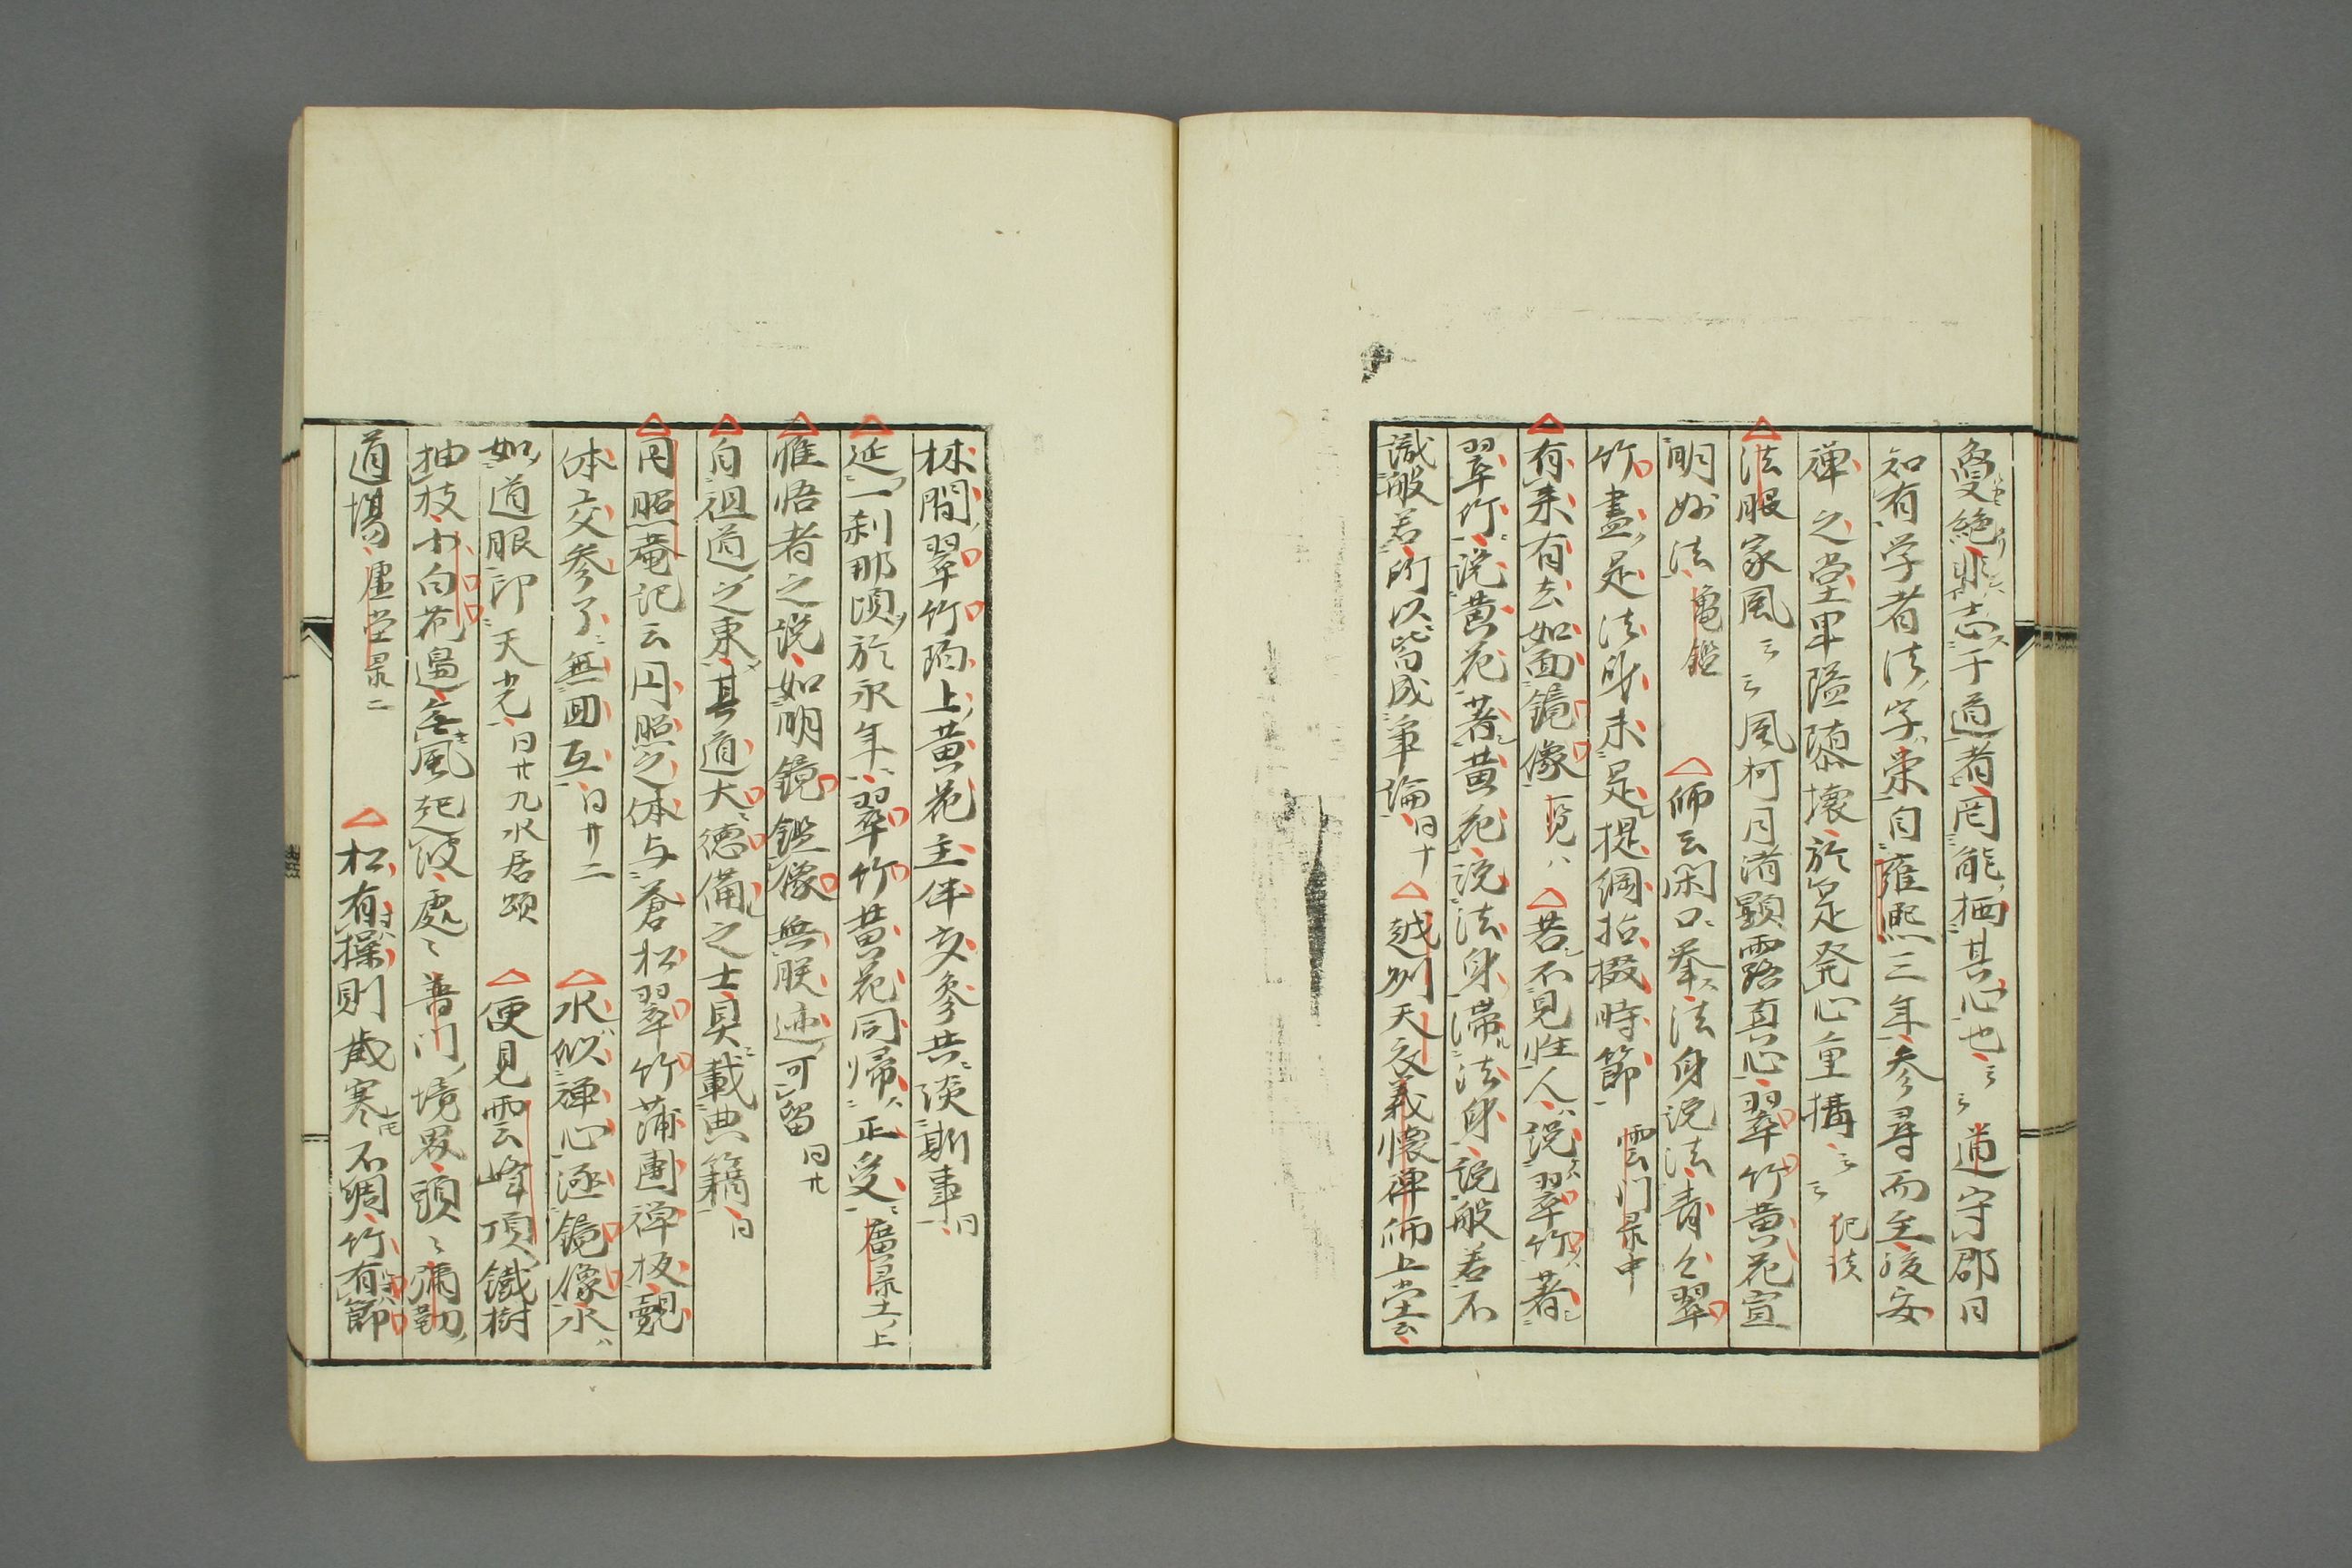 夐絶非志于道者罔能栖其心也云云道守郡日
知有学者法字栄自雍熈三年参尋而至後安
禅之堂卑隘隳壊於是発心重搆云云 紀談
法眼家風云云風柯月渚顕露真心翠竹黄花宣
明妙法 亀鑑 師云闲口挙法身説法青々翠
竹尽是法身未是提綱拈掇時節 雲门录中
有来有去如面鏡像 一覧八 若不見性人説翠竹著
翠竹説黄花著黄花説法身滞法身説般若不
識般若所以皆成争論 同十 越州天衣義懐禅師上堂云
林間翠竹陌上黄花主伴交参共談斯事 同
延一刹那頃於永年翠竹黄花同帰正受 廣录十上
惟悟者之説如明鏡鑑像無朕迹可留 同廿
自祖道之東其道大徳備之士具載典籍 同
円照菴記云円照之体与蒼松翠竹蒲團禅板覿
体交参了無回互 同廿二 水似禅心逐鏡像水
如道眼印天光 同廿九水居頌 便見雲峰頂鐵樹
抽枝小白花邉無風起波處々普门境界頭々弥勒
道場 虚堂录二 松有操則歳寒不凋竹有節